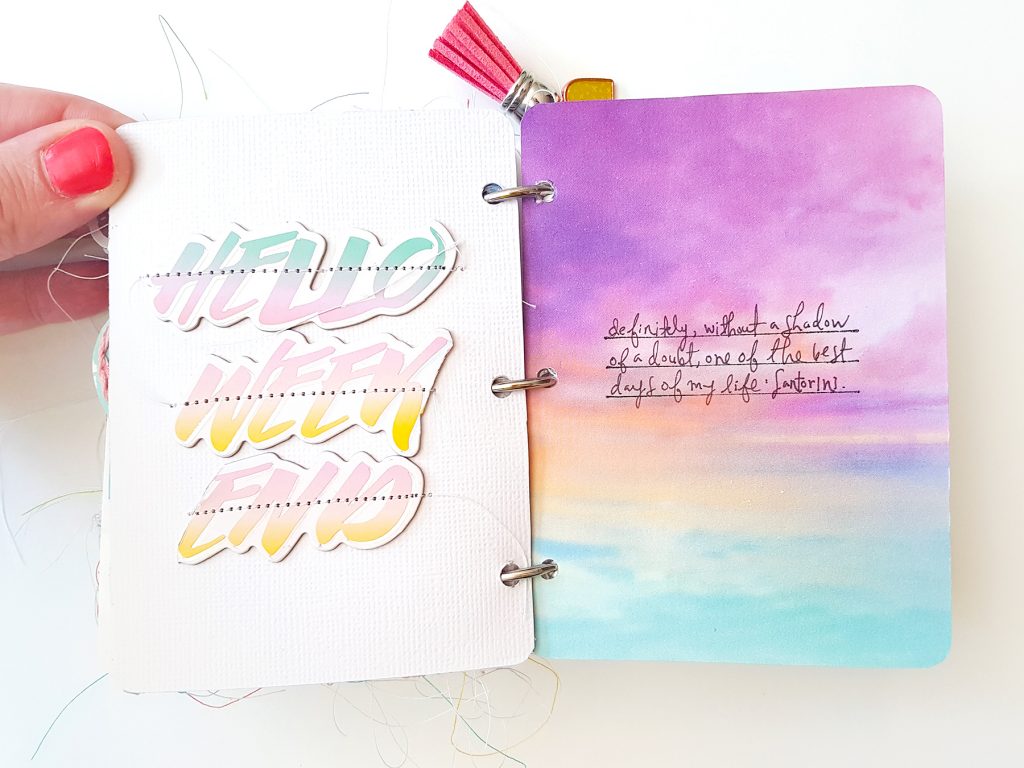 HELLO
WEEK
END
definitely, without a shadow
of a doubt, one of the best
days of my life. Santorini.